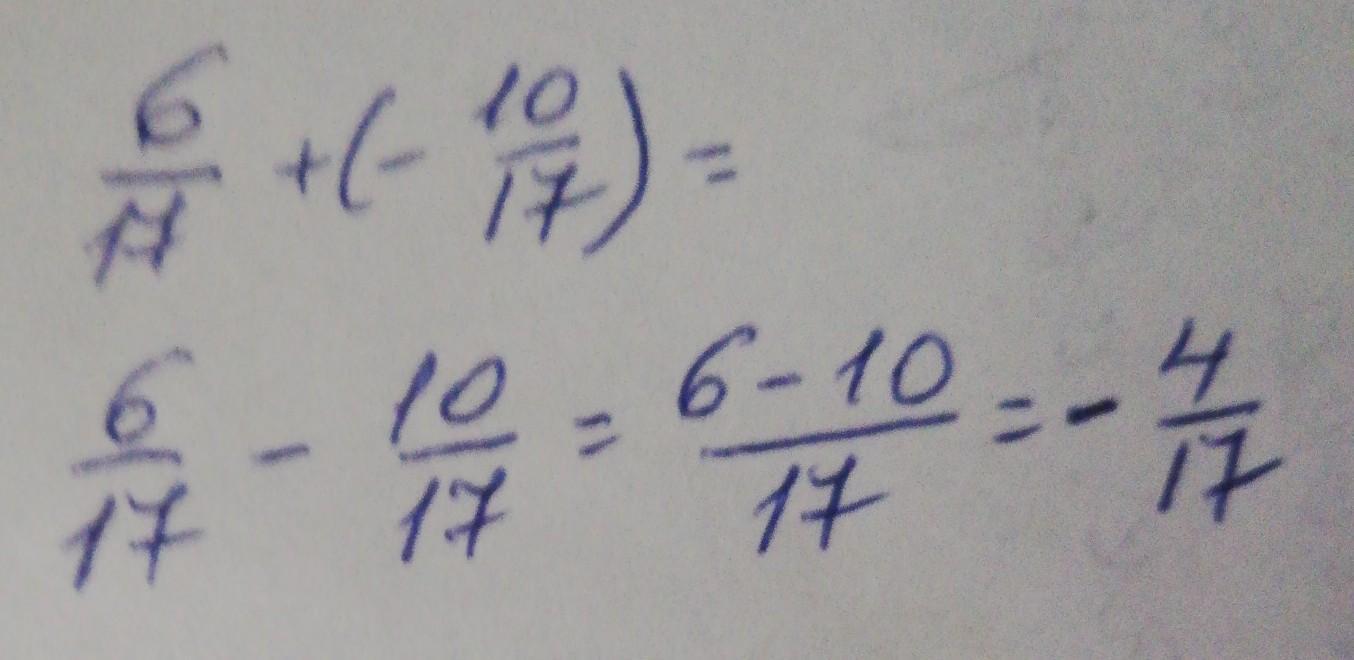 6/17 + (- 10/17) =
6/17 - 10/17 = 6-10/17 = - 4/17